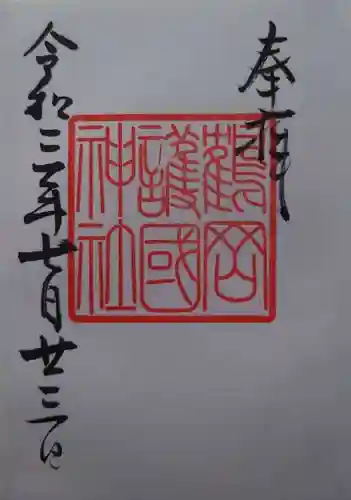 奉拝
鶴岡
護國
神社
令和三年七月廿三日